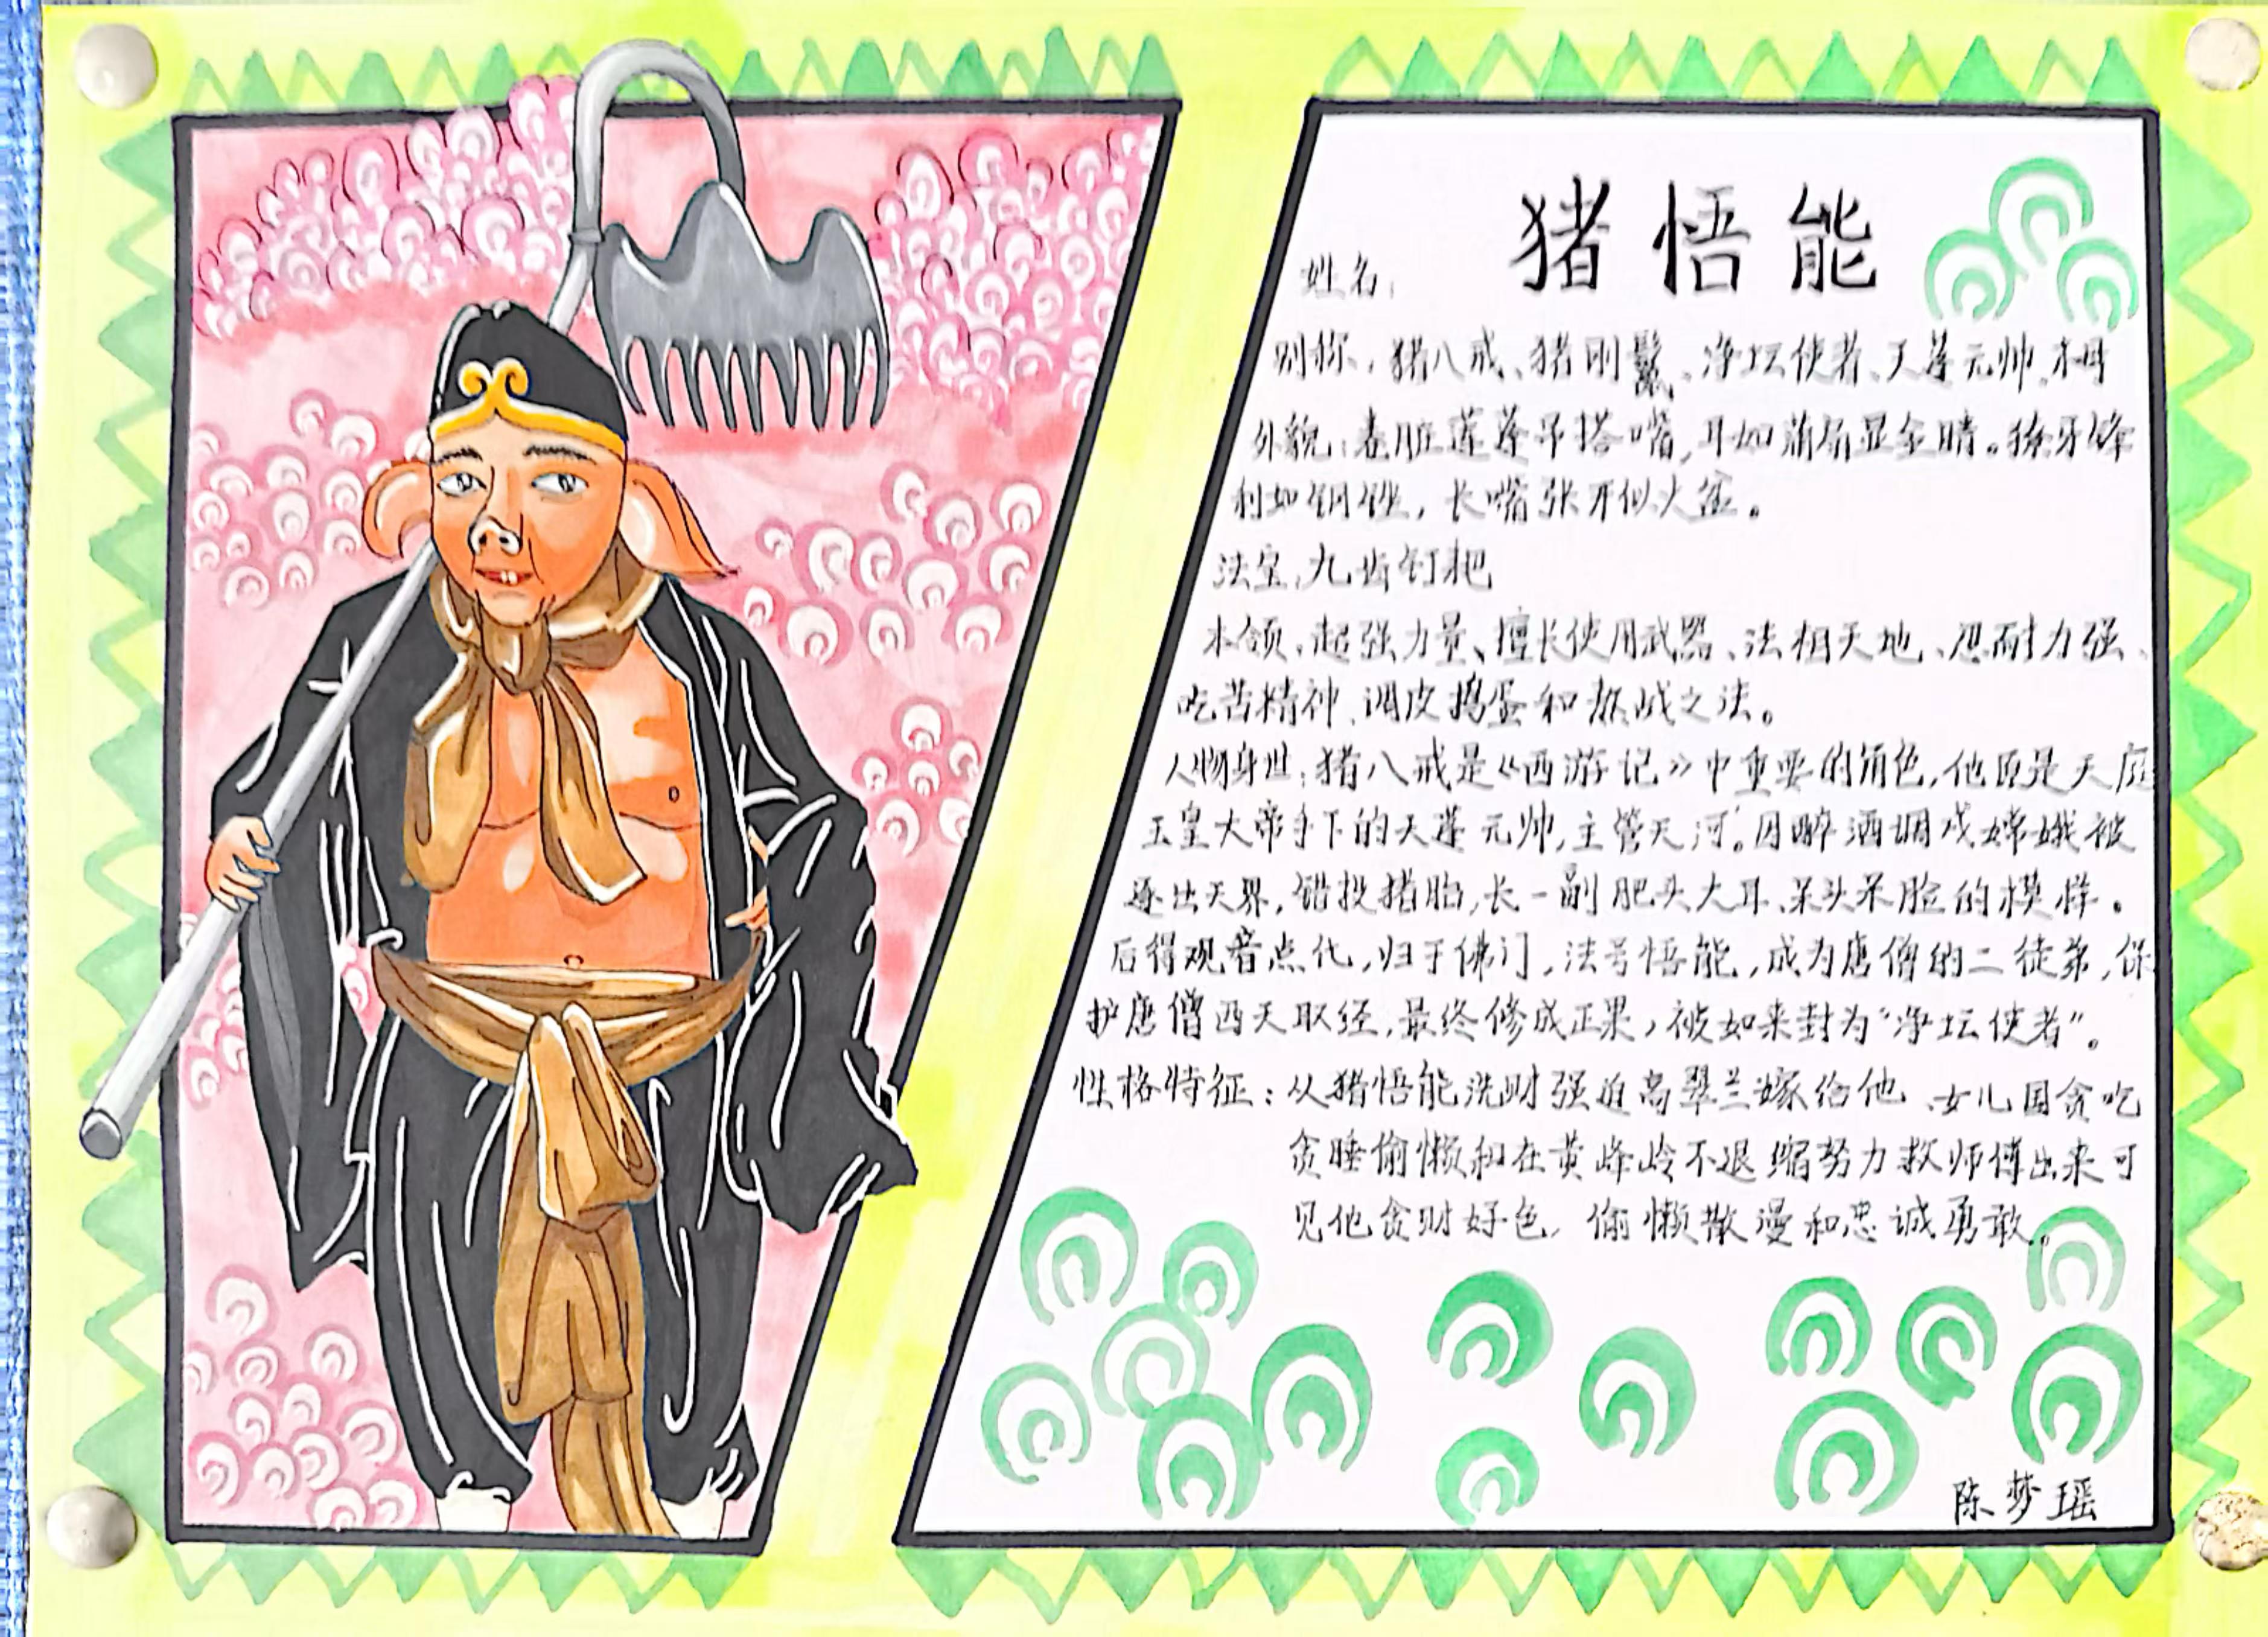 猪悟能
姓名:
别称:猪八戒、猪刚鬣、净坛使者、天蓬元帅、木母
外貌:卷脏莲蓬吊搭嘴,耳如蒲扇显金睛。獠牙锋
利如钢锉,长嘴张开似火盆。
法宝:九齿钉耙
本领:超强力量、擅长使用武器、法相天地、忍耐力强、
吃苦精神、调皮捣蛋和热战之法。
人物身世:猪八戒是《西游记》中重要的角色,他原是天庭
玉皇大帝手下的天蓬元帅,主管天河。因醉酒调戏嫦娥被
逐出天界,错投猪胎,长一副肥头大耳、呆头呆脸的模样。
后得观音点化,归于佛门,法号悟能,成为唐僧的二徒弟,保
护唐僧西天取经,最终修成正果,被如来封为“净坛使者”。
性格特征:从猪悟能洗财强迫高翠兰嫁给他、女儿国贪吃
贪睡偷懒和在黄峰岭不退缩努力救师傅出来可
见他贪财好色,偷懒散漫和忠诚勇敢。
陈梦瑶